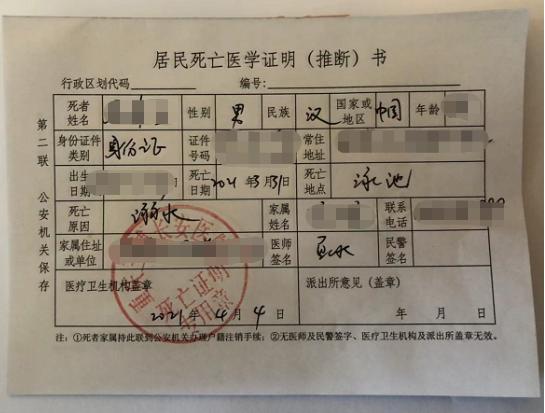 居民死亡医学证明（推断）书
行政区划代码 编号：
死者姓名 性别 男 民族 汉 国家或地区 中国 年龄
身份证件类别 身份证 证件号码 常住地址
出生日期 死亡日期 2021年3月31日 死亡地点 泳池
死亡原因 溺水 家属姓名 联系电话
家属住址或单位 医师签名 民警签名
医疗卫生机构盖章 派出所意见（盖章）
2021年4月4日 年 月 日
注：①死者家属持此联到公安机关办理户籍注销手续；②无医师及民警签字、医疗卫生机构及派出所盖章无效。
第二联 公安机关保存
死亡证明
专用章